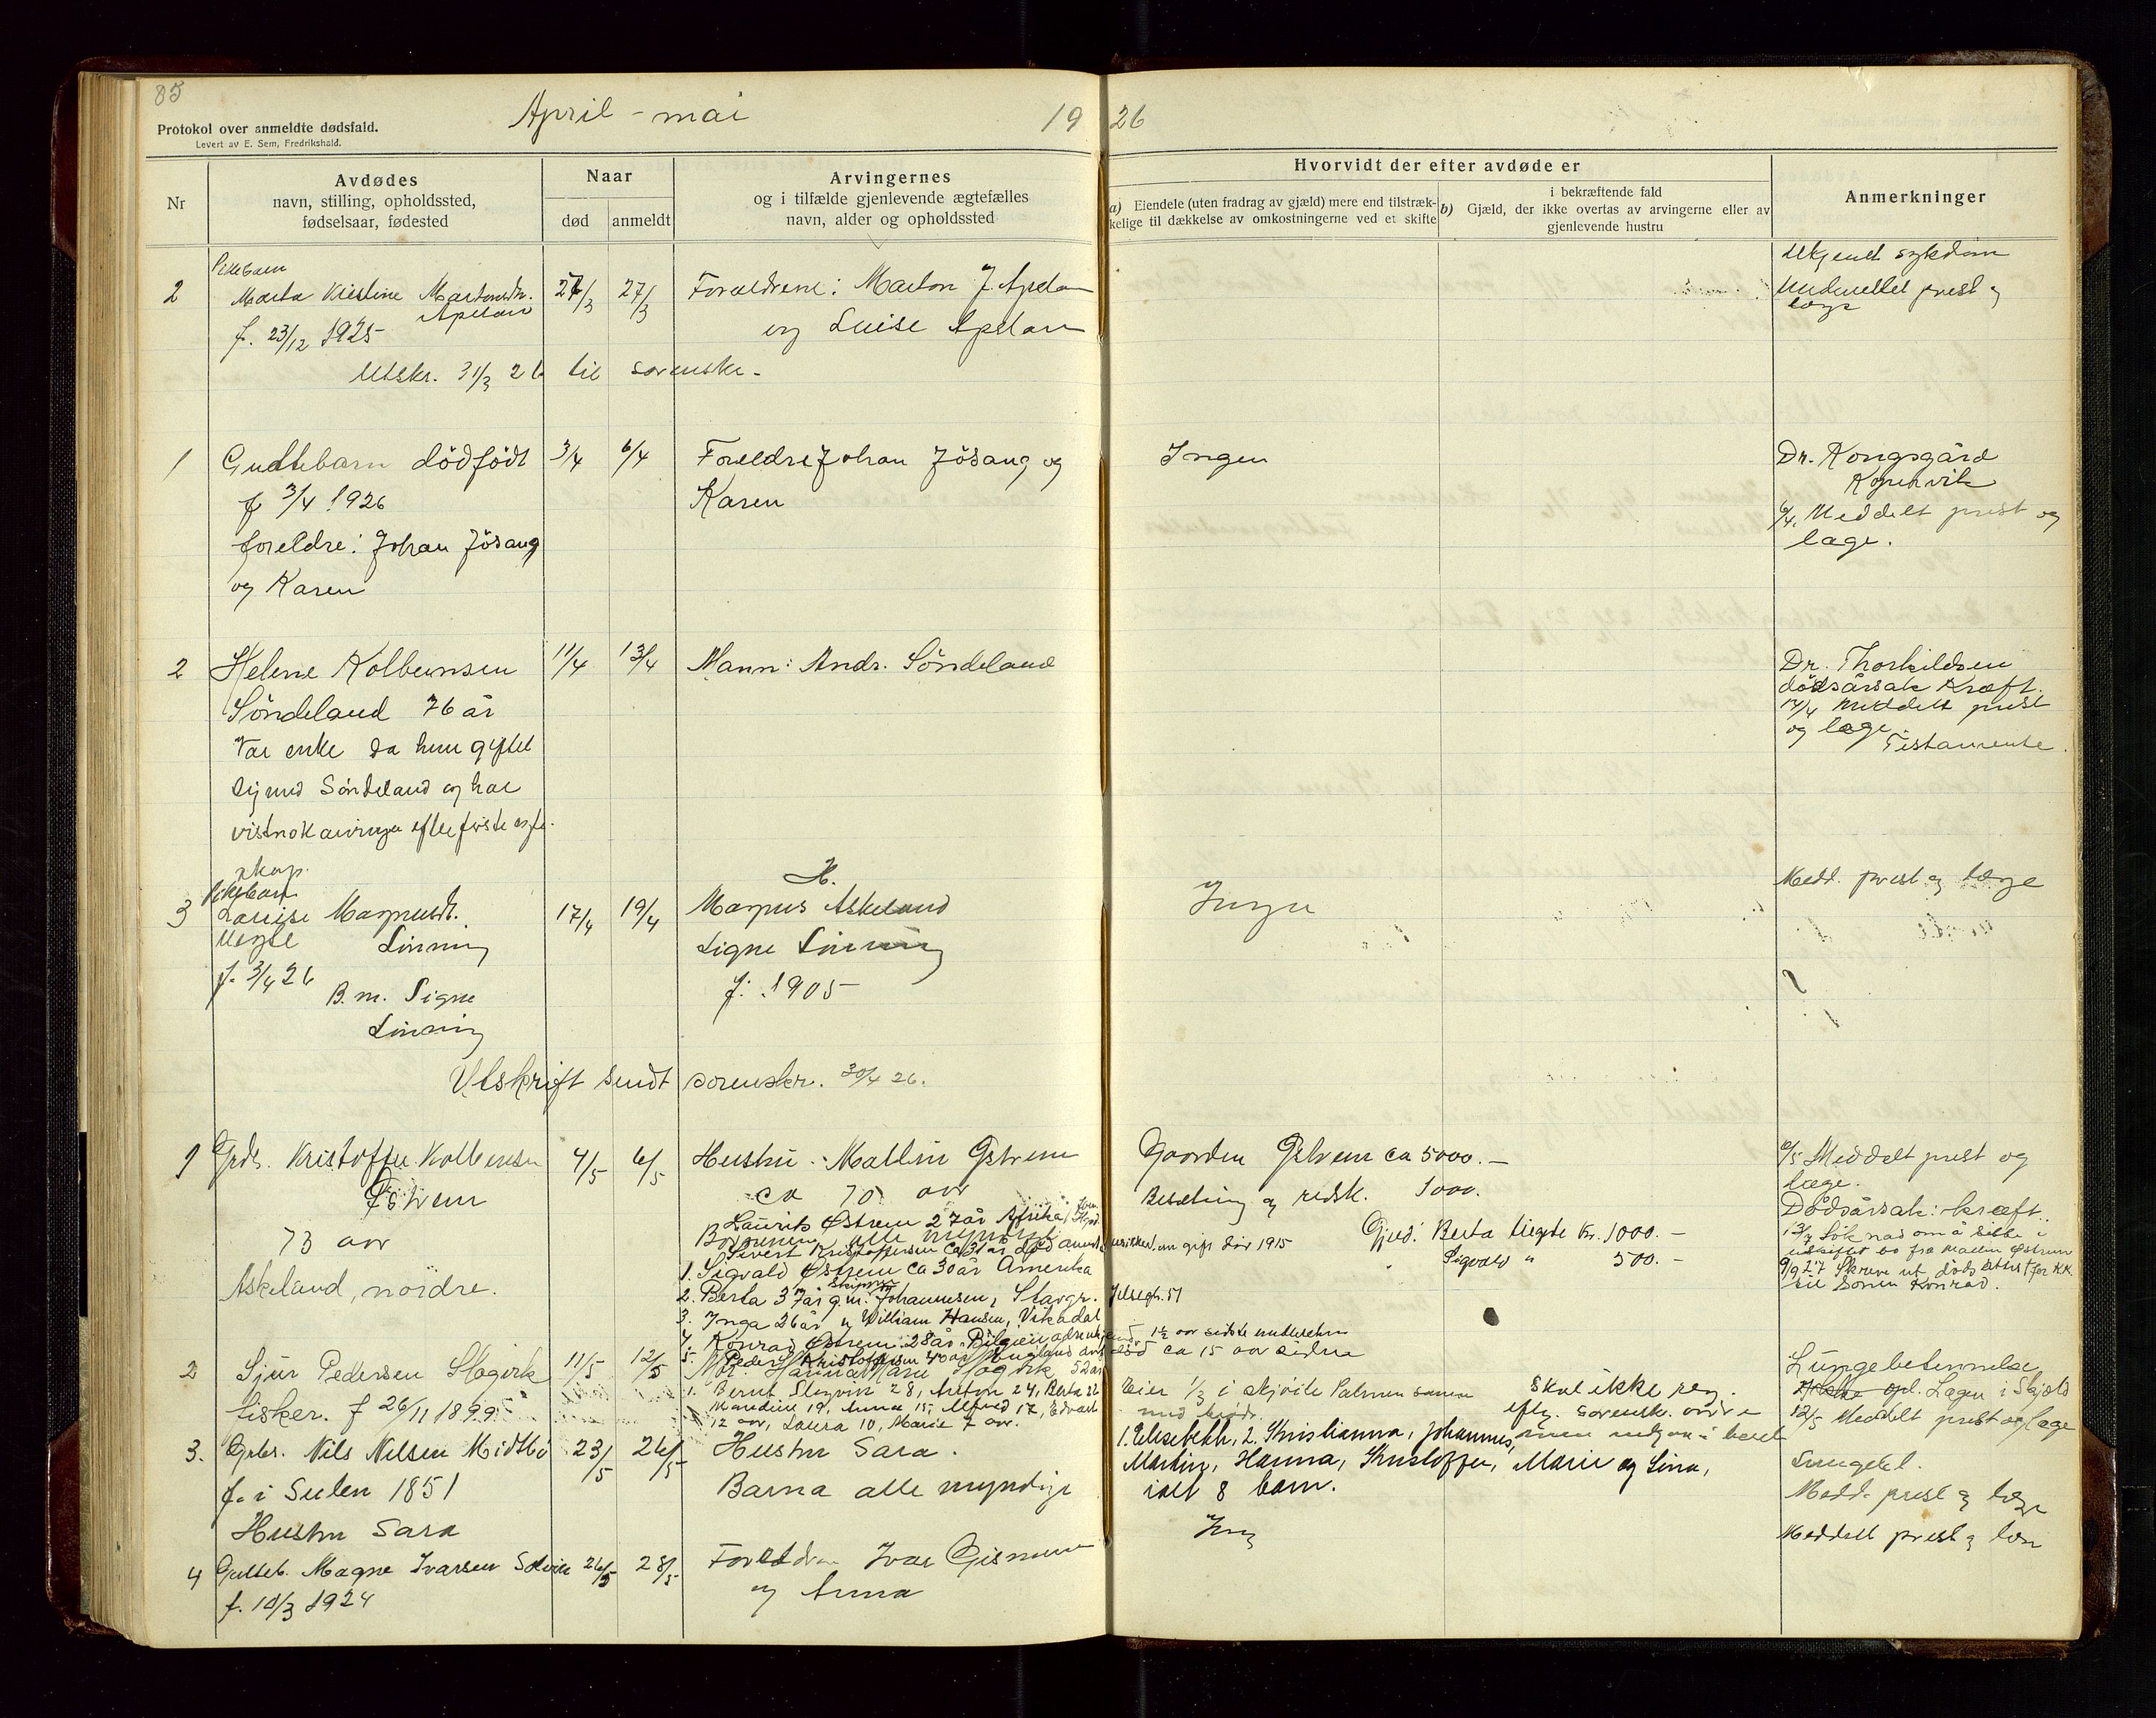 85
April - mai 19 26
Protokol over anmeldte dødsfald.
Levert av E. Sem, Fredrikshald.
Nr
Avdødes
navn, stilling, opholdssted,
fødselsaar, fødested
Naar
død
anmeldt
Arvingernes
og i tilfælde gjenlevende ægtefælles
navn, alder og opholdssted
Hvorvidt der efter avdøde er
a) Eiendele (uten fradrag av gjæld) mere end tilstræk-
kelige til dækkelse av omkostningerne ved et skifte
i bekræftende fald
b) Gjæld, der ikke overtas av arvingerne eller av
gjenlevende hustru
Anmerkninger
Pikebarn
2 Marta Kristine Martonsdr. 27/3 27/3 Forældrene: Marton J Apeland
Apeland
f. 23/12 1925
og Luise Apeland
Ukjendt sykdom
Underrettet prest og
læge
Utskr. 31/3 26 til sorenskr.
1 Guttebarn dödfödt 3/4 6/4 Foreldre Johan Jösang og
f 3/4 1926
Karen
foreldre: Johan Jösang
og Karen
Ingen
Dr. Kongsgård
Kopervik
6/4. Meddelt prest og
læge.
2 Helene Kolbeinsen 11/4 13/4 Mann: Andr. Söndeland
Söndeland 76 år
Var enke da hun giftet
sig med Söndeland og har
vistnok arvinger efter første egte-
skap.
Dr. Thorkildsen
dödsårsak Kræft.
14/4 meddelt prest
og læge.
Testamente.
Pikebarn
3 Louise Magnusdt. 17/4 19/4
Linning
f. 3/4 26
B.m. Signe
Linning
H.
Magnus Askeland
Signe Linning
f. 1905
Ingen
Medd. prest og læge
Utskrift sendt sorenskr. 30/4 26.
1 Grdr. Kristoffer Kolbeinsen 4/5 6/5 Hustru: Mallin Østrem
Østrem
ca 70 aar
73 aar
Askeland, nordre.
Laurits Østrem 27 år Afrika
Sivert Kristoffersen
1. Sigvald Østrem ca 30 år Amerika
2. Berta 37 år g.m. Skipper Johannesen, Stavgr. Jelsegt. 51
3. Inga 26 år " William Hansen, Vikedal
4. Konrad Østrem 28 år
5. Peder Kristoffersen død ca 15 aar siden
Gaarden Østrem ca 5000.-
Besætning og redsk. 1000.
Gjeld: Berta Kr. 1000.-
" Sigvald " 500.-
6/5 Meddelt prest og
læge.
Dödsårsak: kræft.
Søknad om å sitte i
uskiftet bo fra Mallin Østrem
til sönen Konrad.
2 Sjur Pedersen Slogvik 11/5 12/5 Mor: Hanna Marie Slogvik 52 aar
fisker. f 26/11 1899
1. Bernt Slogvik 28, Anton 24, Berta 22
19, Anna 15, Alfred 17, Edvart
12 aar, Laura 10, Marie 7 aar.
Eier 1/3 i skjöite Palmen sammen
Skal ikke reg.
eftr. sorenskr. ordre
Lungebetennelse
Lægen i Skjold
12/5 Meddelt prest og læge
3. Grbr. Nils Nilsen Midtbö 23/5 26/5 Hustru Sara.
f. i Sulen 1851
Barna alle myndige
Hustru Sara
1. Elisebeth, 2. Kristianna, Johannes,
Martin, Hanna, Kristoffer, Marie og Lina,
ialt 8 barn.
Medd. prest og læge
4 Gutteb. Magne Ivarsen 26/5 28/5 Foreldre Ivar Gismervik
f. 10/3 1924
og Anna
Ing
Meddelt prest og læge